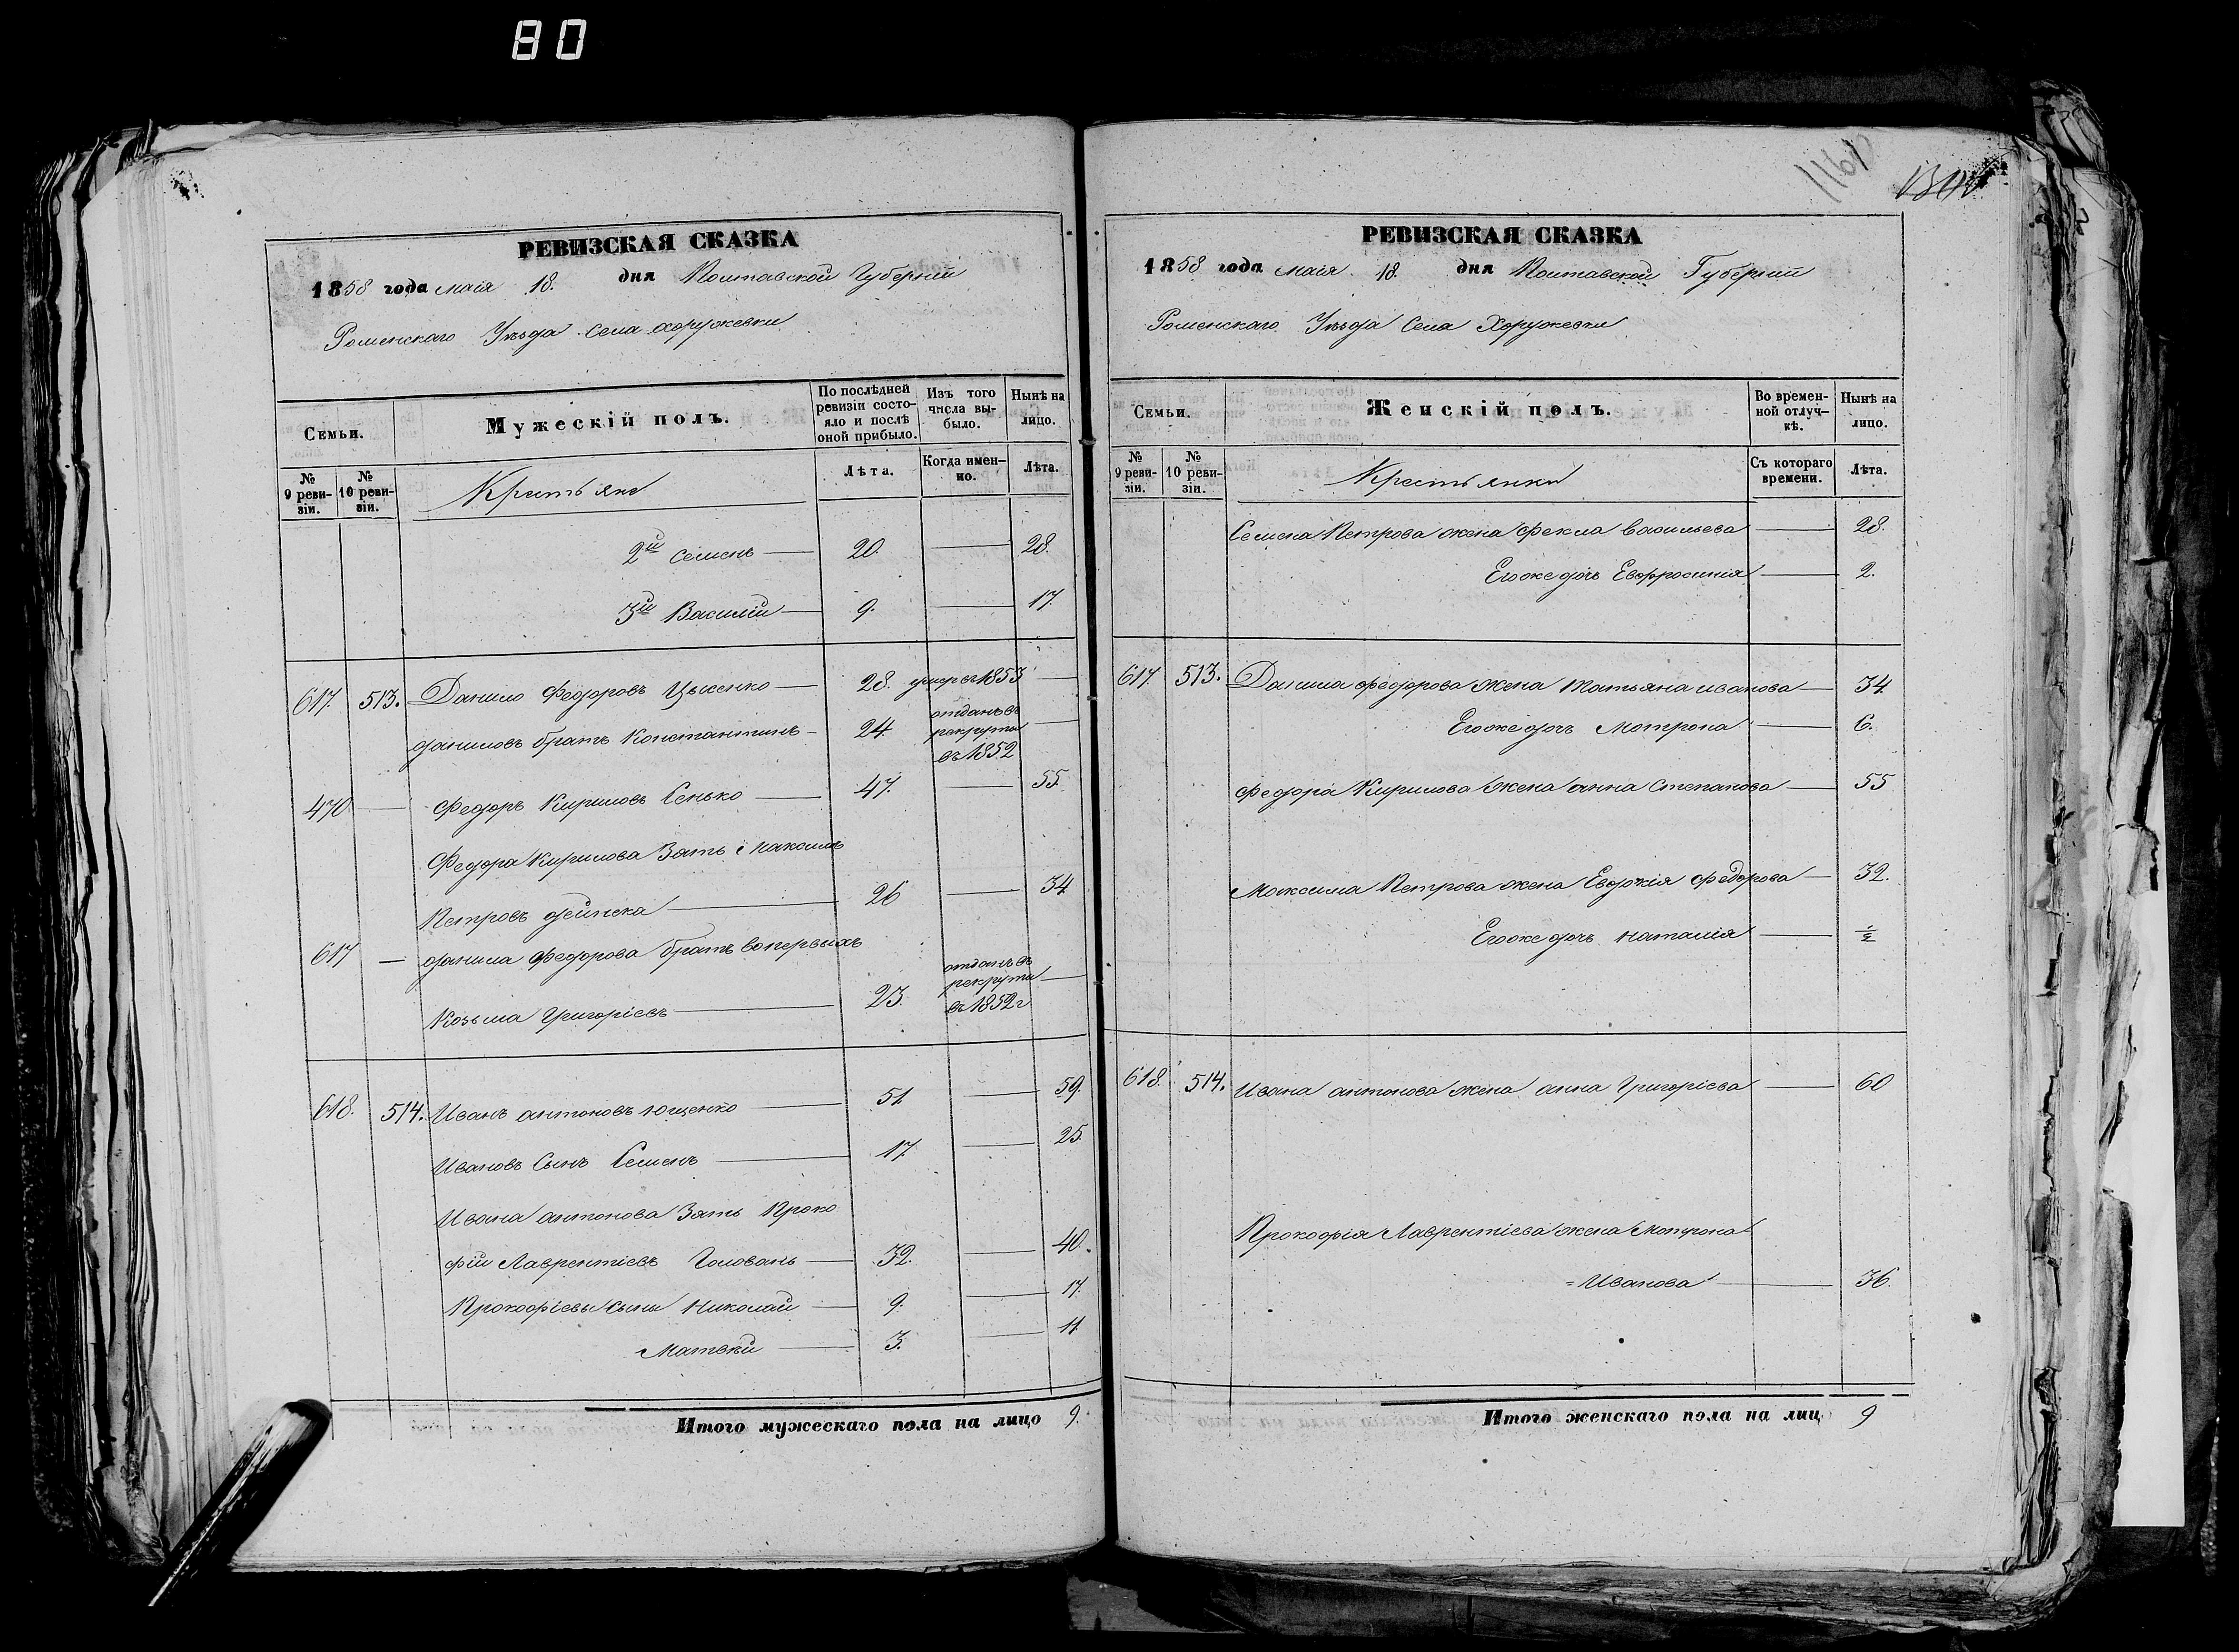 80
1161
РЕВИЗСКАЯ СКАЗКА
1858 года маія 18. дня Полтавской Губерніи
Роменскаго Уѣзда Села Хоружевки
Семьи.
Мужескій полъ.
По послѣдней ревизіи состояло и послѣ оной прибыло.
Изъ того числа выбыло.
Нынѣ на лицо.
№ 9 ревизіи.
№ 10 ревизіи.
Крестьяне
Лѣта.
Когда именно.
Лѣта.
2й Семенъ — 20. — 28.
3й Василій — 9. — 17.
617. 513. Данило Федоровъ Цысенко — 28. умеръ 1853 —
Даниловъ братъ Константинъ — 24. отданъ въ рекруты въ 1852 —
470 — Федоръ Кириловъ Сенько — 47. — 55.
Федора Кирилова Зять Максимъ
Петровъ Дейнека — 26 — 34
617 — Данила Федорова братъ вопервыхъ
Козьма Григоріевъ — 23. отданъ въ рекруты въ 1852 г —
618. 514. Иванъ Антоновъ Ющенко — 51 — 59.
Ивановъ Сынъ Семенъ — 17 — 25.
Ивана Антонова Зять Проко
фій Лаврентіевъ Головань — 32. — 40.
Прокофіевы Сыны Николай — 9. — 17.
Матвѣй — 3. — 11
Итого мужескаго пола на лицо 9.
РЕВИЗСКАЯ СКАЗКА
1858 года маія 18. дня Полтавской Губерніи
Роменскаго Уѣзда Села Хоружевки
Семьи.
Женскій полъ.
Во временной отлучкѣ.
Нынѣ на лицо.
№ 9 ревизіи.
№ 10 ревизіи.
Крестьянки
Съ котораго времени.
Лѣта.
Семена Петрова жена Фекла Васильева — 28.
Егоже дочь Евфросинія — 2.
617. 513. Данила Федорова жена Татьяна Иванова — 34
Егоже дочь Мотрона — 6.
Федора Кирилова жена Анна Степанова — 55
Максима Петрова жена Евдокія Федорова — 32.
Егоже дочь Наталія —
618. 514. Ивана Антонова жена Анна Григоріева — 60
Прокофія Лаврентіева жена Мотрона
= Иванова — 36.
Итого женскаго пола на лиц 9